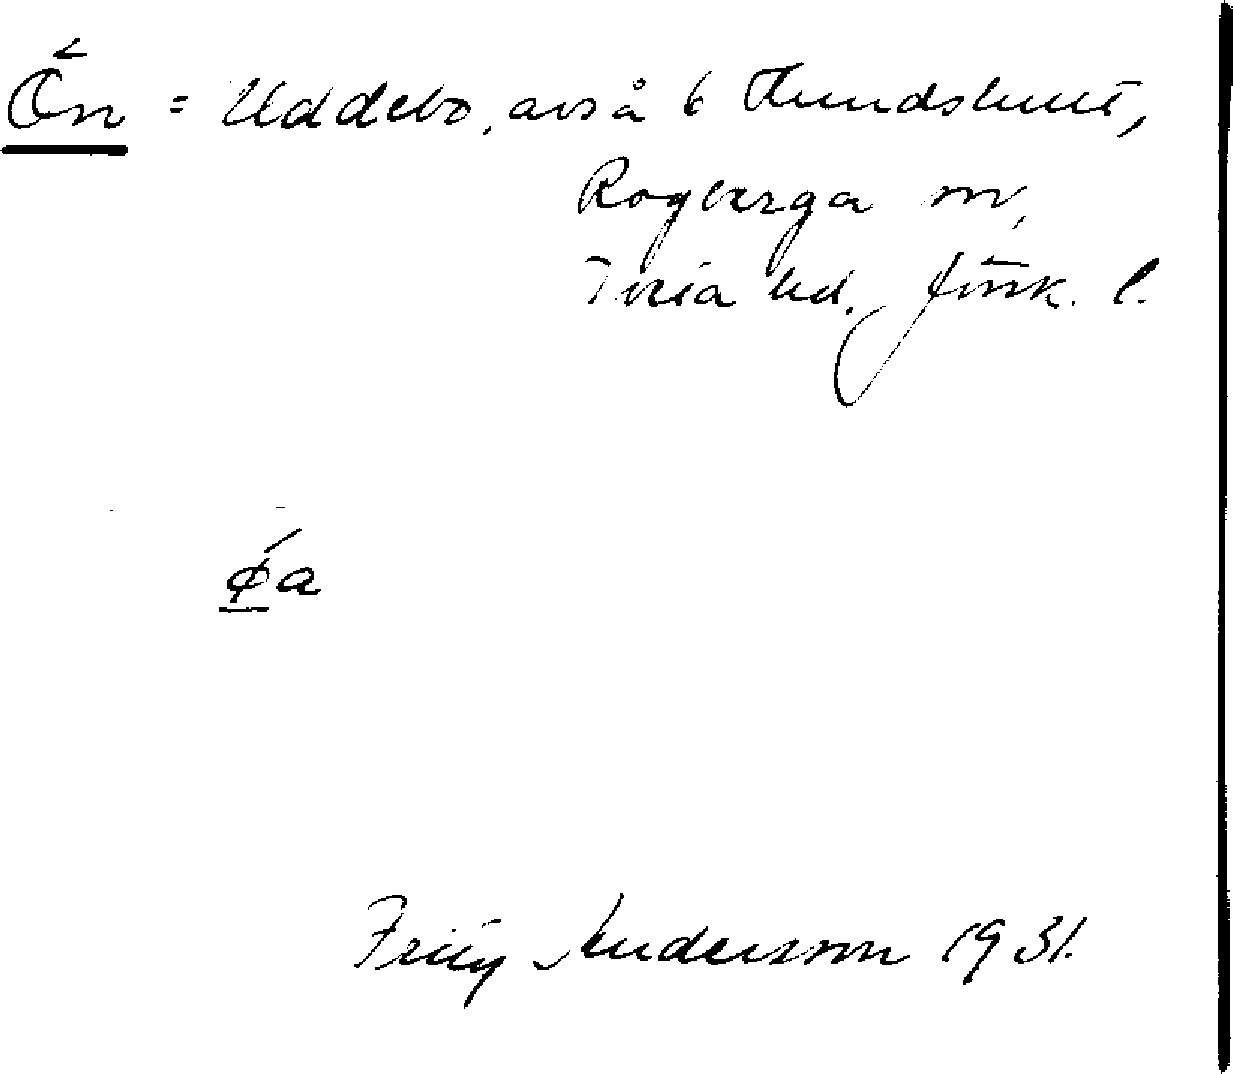 Ön = Uddebo, avs å 6 Hundshult,
Rogberga sn,
Tveta hd. Jönk. l.
ǿa
Anderson 1931.